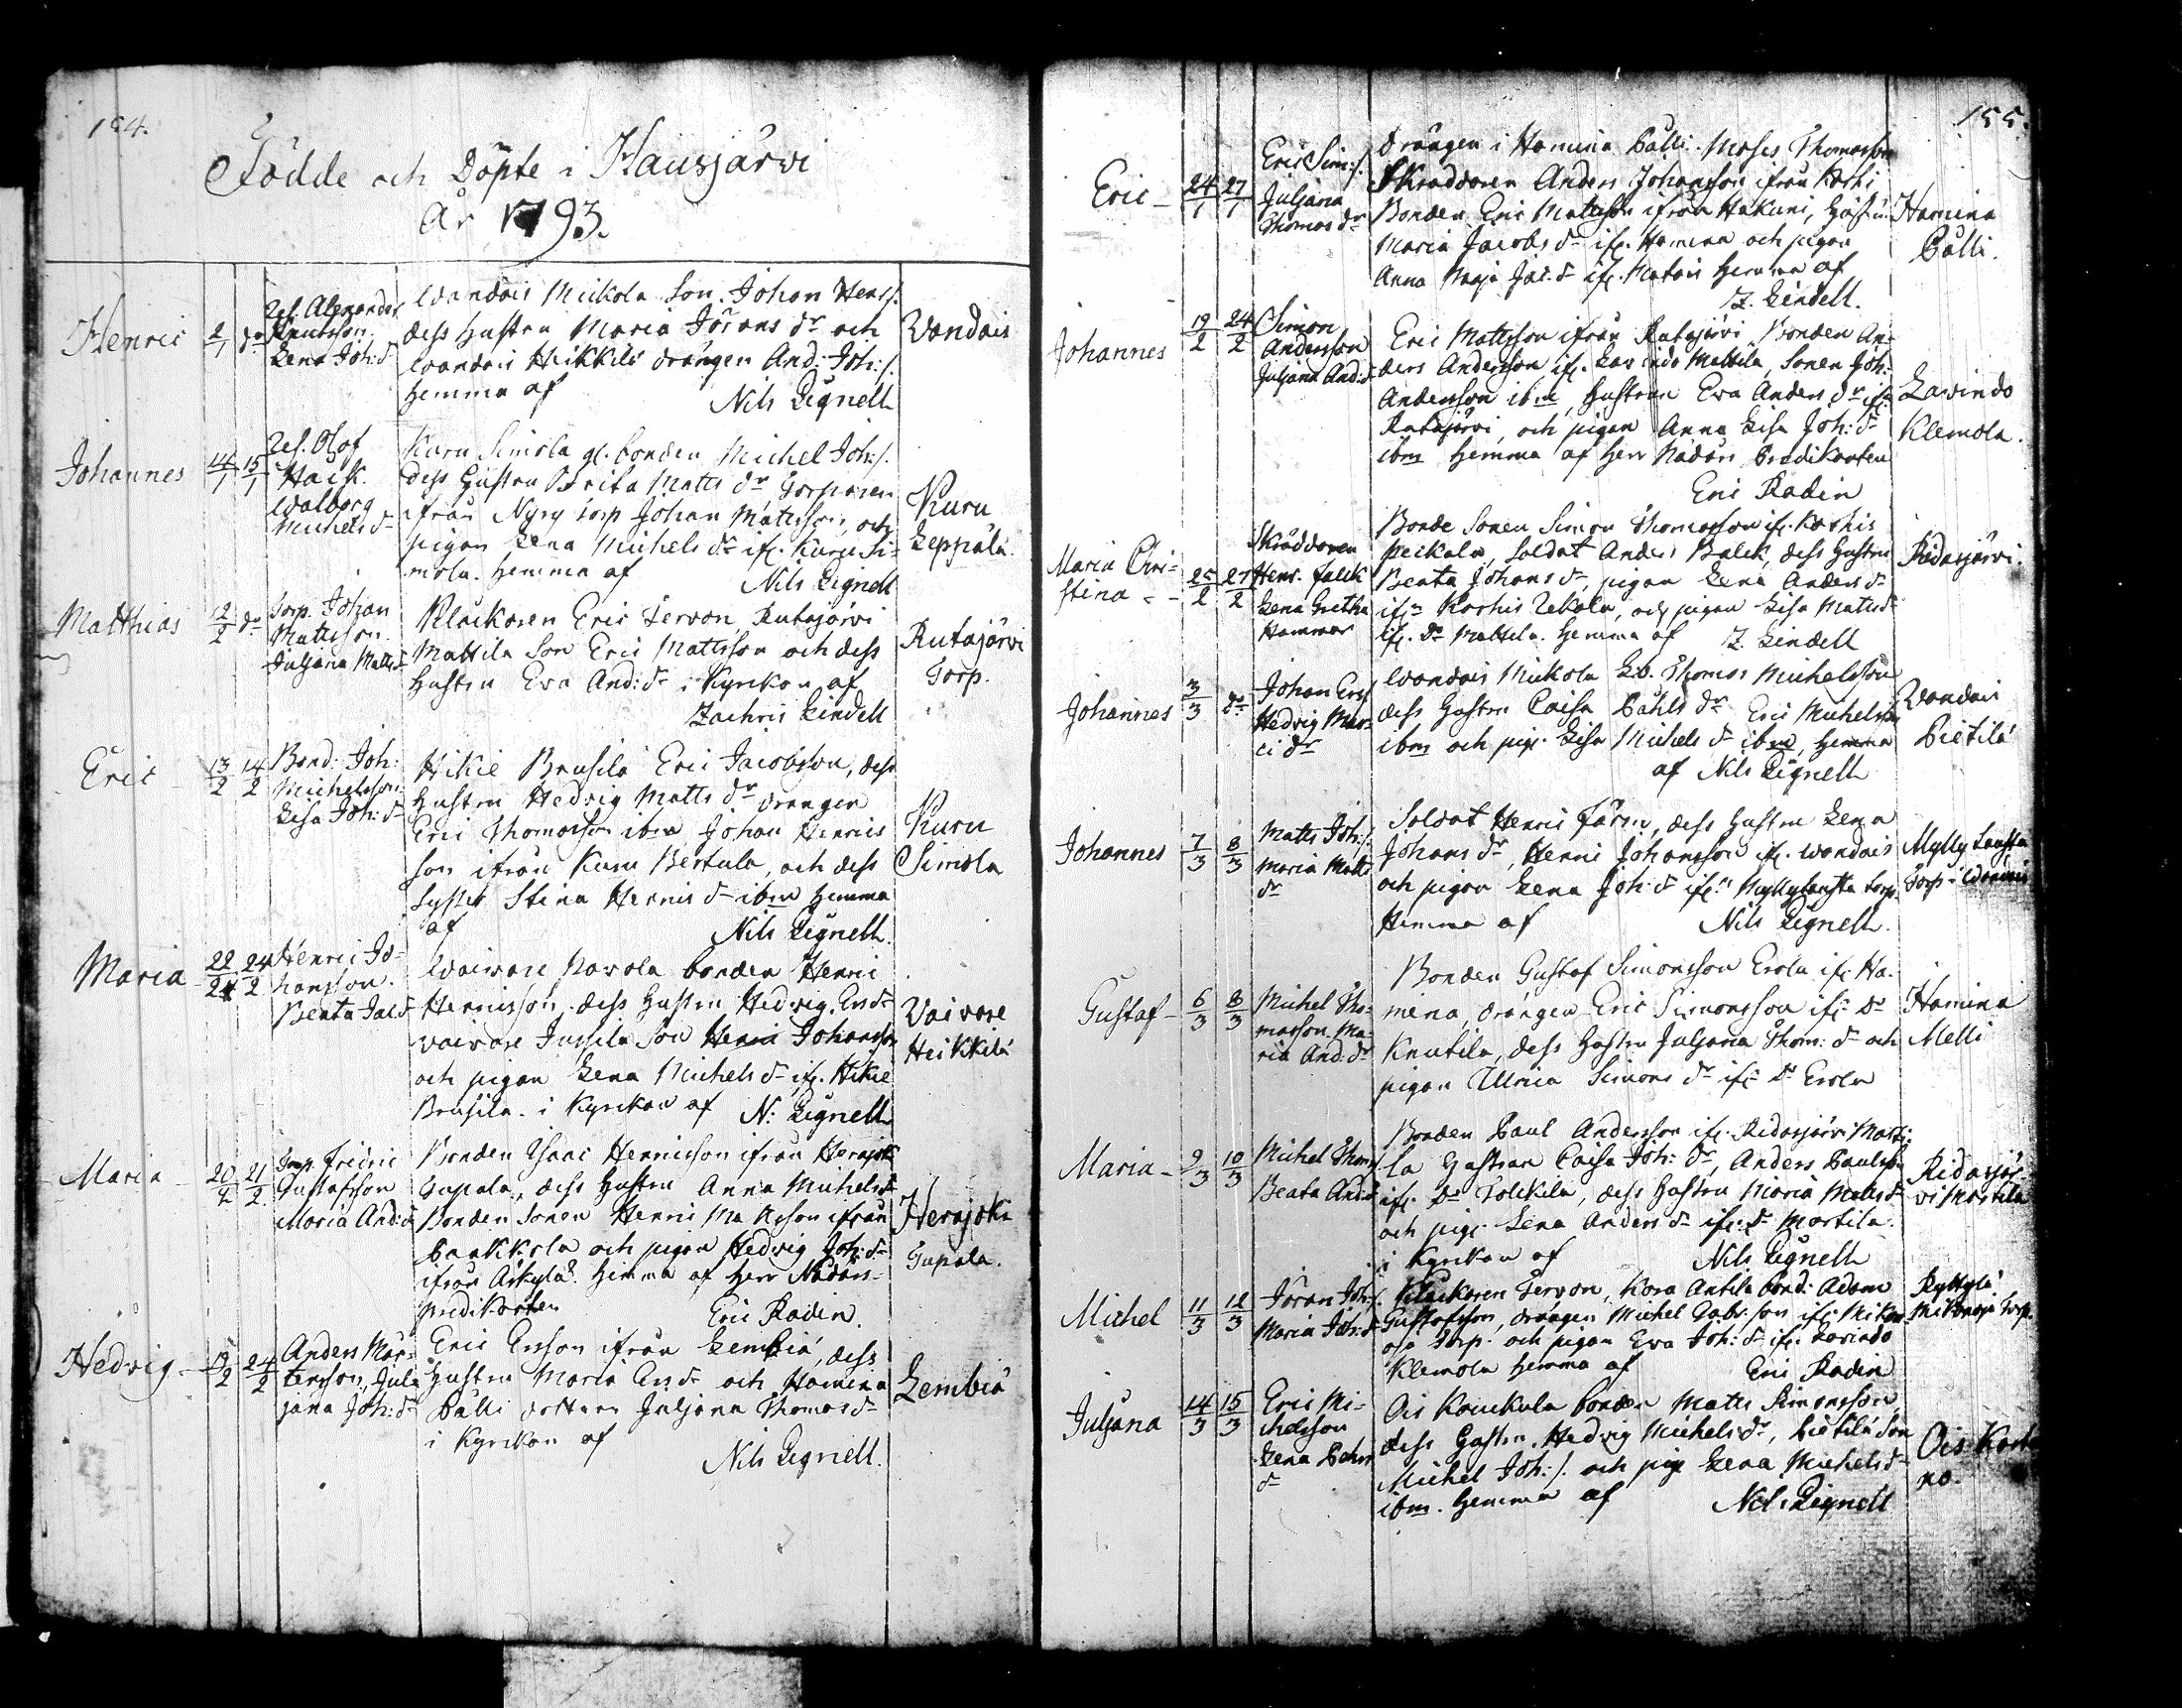 154.
Födde och Döpte i Hausjärvi
År 1793.
Henric 2/1 do
Ref. Alexander
Knutsson.
Lena Joh: dr
Wandais Mickola Son. Johan Henr:/.
dess hustru Maria Jörans dr och
Wandais Heikkilä drängen And: Joh:/.
hemma af
Nils Lignell
Wandais
Johannes 14/1 15/1
Ref. Olof
Haik.
Walborg
Michels dr
Kuru Simola gl. bonden Michel Joh:/.
dess Hustru Brita Matts dr Torparen
ifrån Nyry torp Johan Mattsson, och
pigan Lena Michels dr ifr. Kuru Si-
mola. hemma af
Nils Lignell
Kuru
Leppälä.
Matthias 12/2 do
Torp. Johan
Mattsson.
Juliana Matts dr
Klockaren Eric Tervon, Rutajärvi
Mattila Son Eric Mattsson och dess
hustru Eva And: dr i Kyrkan af
Zachris Lindell
Rutajärvi
Torp.
Eric 13/2 14/2
Bond: Joh:
Michelsson
Lisa Joh: dr
Hikie Brusila Eric Jacobsson, dess
hustru Hedvig Matts dr drängen
Eric Thomasson ibm Johan Henrics
son ifrån Kuru Bertula, och dess
Syster Stina Henrics dr ibm hemma
af
Nils Lignell.
Kuru
Simola
Maria 22/2 24/2
Henric Jo-
hansson.
Beata Jac: dr
Waivare Navola bonden Henric
Henricsson, dess hustru Hedvig Ers dr
vaivare Jussila Son Henric Johansson
och pigan Lena Michels dr ifr. Hikie
Brusila. i Kyrkan af N: Lignell
Vaivare
Heikkilä
Maria 20/2 21/2
Torp. Fredric
Gustafsson
Maria And: dr
Bonden Isaac Henricsson ifrån Herajoki
Gupala, dess hustru Anna Michels dr
Bonden Sonen Henric ifrån
Pankkola och pigan Hedvig Joh: dr
ifrån Arkylä. hemma af Herr Nådårs-
predikanten
Eric Radin.
Herajoki
Gupala.
Hedvig 19/2 24/2
Anders Mår-
tensson, Jul-
jana Joh: dr
Eric Ersson ifrån Lembiä, dess
hustru Maria Ers dr och Hamina
Pälli dottren Juljana Thomas dr
i Kyrkan af
Nils Lignell.
Lembiä
155.
Eric 24/1 27/1
Eric Sim:/.
Juljana
Thomas dr
Drängen i Hamina Pälli. Moses Thomasson
Skräddaren Anders Johansson ifrån Koski
Bonden Eric Mattsson ifrån Hakuni,
Maria Jacobs dr ifr. Hamina och pigan
Anna Maja Jac: dr ifr. hemma af
Z. Lindell.
Hamina
Pälli.
Johannes 19/2 24/2
Simon
Andersson
Juljana And: dr
Eric Mattsson ifrån Rutajärvi Bonden An-
ders Andersson ifr. Lavindo Mattila, Sonen Joh:
Andersson ibm, hustrun Eva Anders dr ifr.
Rutajärvi, och pigan Anna Lisa Joh: dr
ibm hemma af Herr Nådårs Predikanten
Eric Radin
Lavindo
Klemola.
Maria Chri-
stina 25/2 27/2
Skräddaren
Henr. Falck
Lena Gretha
Hammar
Bonde Sonen Simon Thomasson ifr. Koskis
Peickola, Soldat Anders Balck, dess hustru
Beata Johans dr, pigan Lena Anders dr
ifr. Koskis Uckola, och pigan Lisa Matts dr
ifr. do Mattila. hemma af Z. Lindell
Ridasjärvi.
Johannes 3/3 do
Johan Ers/.
Hedvig Mar-
ci dr
Wandais Mickola Thomas Michelsson
dess hustru Caisa Påhls dr Eric Michelsson
ibm och pig. Lisa Michels dr ibm, hemma
af Nils Lignell
Wandais
Pietilä
Johannes 7/3 8/3
Matts Joh:/.
Maria Matts
dr
Soldat Henric Färm, dess hustru Lena
Johans dr, Henric Johansson ifr. Wandais
och pigan Lena Joh: dr ifr. Myllylausta torp.
Hemma af
Nils Lignell.
Mylly Lausta
Torp
Gustaf 6/3 8/3
Michel Tho-
masson, Ma-
ria And: dr
Bonden Gustaf Simonsson Erola ifr. Ha-
mina, drängen Eric Simonsson ifr. do
Knutila, dess hustru Juljana Thom: dr och
pigan Ulrica Simons dr ifr. do Erola
Hamina
Melli
Maria 9/3 10/3
Michel Thom:
Beata And: dr
Bonden Paul Andersson ifr. Ridasjärvi Marti-
la hustrun Caisa Joh: dr, Anders Paulsson
ifr. do Tolckila, dess hustru Maria Matts dr
och pig. Lena Anders dr ifr. do Martila.
i Kyrkan af
Nils Lignell
Ridasjär-
vi Martila
Michel 11/3 12/3
Jöran Joh:/.
Maria Joh: dr
Klockaren Tervon, Kara Antila bond: Adam
Gustafsson, drängen Michel Gabr: son ifr. Mikon-
oja Torp. och pigan Eva Joh: dr ifr. Lavindo
Klemola hemma af
Eric Radin
Ryttylä
Mikonoja Torp.
Juljana 14/3 15/3
Eric Mi-
chelsson
Lena Pehrs
dr
Ois Kauckola bonden Matts Simonsson,
dess hustru Hedvig Michels dr, Pietilä Son
Michel Joh:/. och pig. Lena Michels dr
ibm. hemma af
Nils Lignell
Ois